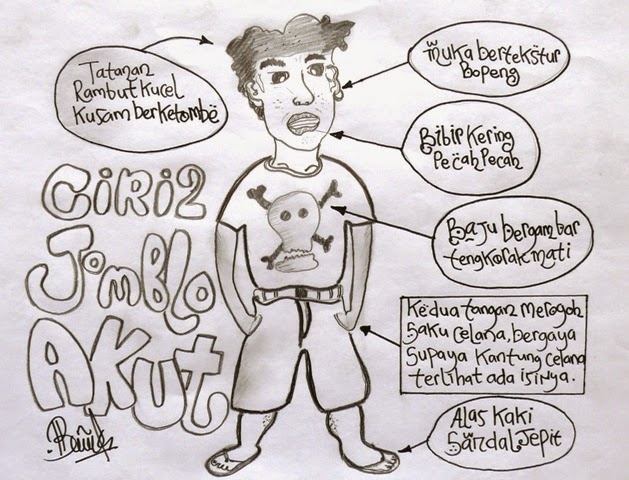 Tatanan
Rambut kucel
Kusam berketombe
Muka bertekstur
Bopeng
Bibir Kering
Pecah Pecah
Baju bergambar
tengkorak mati
Kedua tangan merogoh
Saku celana, bergaya
Supaya kantung celana
terlihat ada isinya.
Alas Kaki
Sandal Jepit
CiRi2
JomBlo
AKut